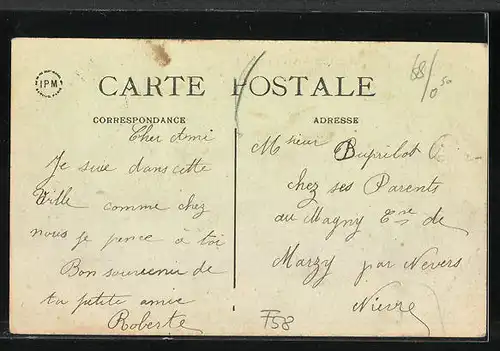 IPM
CARTE POSTALE
68/0 50
CORRESPONDANCE
ADRESSE
Cher Ami
Je suie dans cette
Ville comme chez
nous je pence à toi
Bon souvenir de
ta petite amie
Roberte
Msieur Duprilot
chez ses Parents
au Magny Cne de
Marzy par Nevers
Nievre
F58